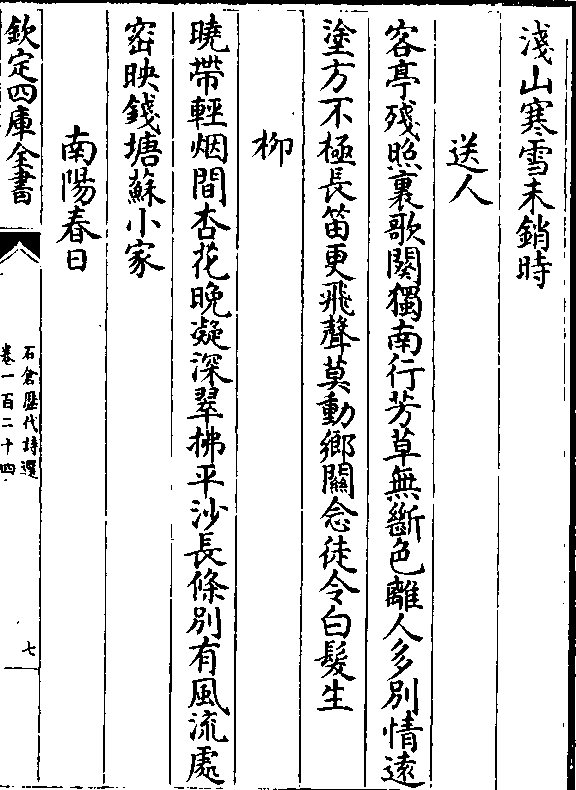 淺山寒雪未銷時
送人
客亭殘照裏歌闋獨南行芳草無斷色離人多別情遠
塗方不極長笛更飛聲莫動鄉關念徒令白髮生
柳
曉帶輕烟間杏花晚凝深翠拂平沙長條別有風流處
宻映錢塘蘇小家
南陽春日
欽定四庫全書
石倉歷代詩選
卷一百二十四
七